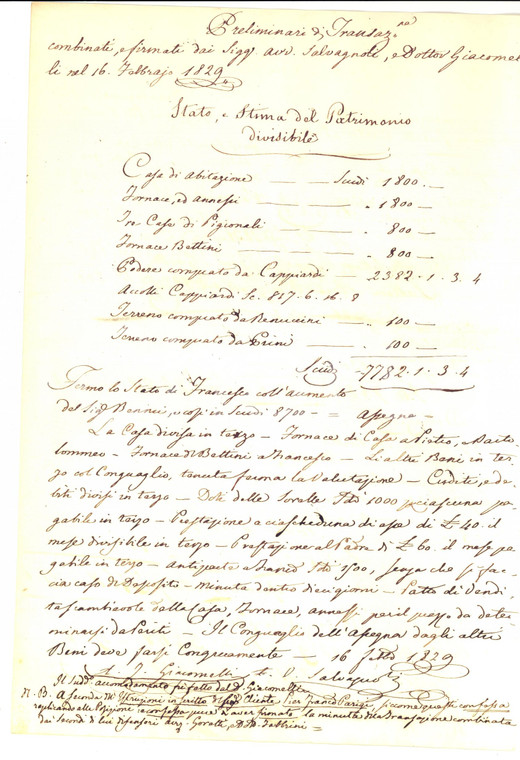 Preliminari di Transaz.ne
combinati, e firmati dai Sigg. Avv. Salvagnoli, e Dottor Giacomel
li nel 16. Febbrajo 1829
Stato, e Stima del Patrimonio
divisibile
Casa di Abitazione — Scudi 1800. —
Fornace, ed annessi — " 1800 —
Tre Case di Pigionali — " 800 —
Fornace Bettini — " 800 —
Podere comprato da Cappiardi — 2382.1.3.4
Accolli Cappiardi Sc. 817.6.16.8
Terreno comprato da Benuccini — " 100 —
Terreno comprato da Prini — " 100 —
Scudi 7782.1.3.4
Fermo lo Stato di Francesco coll'aumento
del Sig. e così in Scudi 8700 — = Assegne =
La Casa divisa in terzo — Fornace di Casa a Pietro, e Barto
lommeo — Fornace di Bettini a Francesco — Li altri Beni in ter
zo col Conguaglio, tenuta ferma la Valutazione — Crediti, e de
biti divisi in terzo — Doti delle Sorelle 1000 per ciascuna pa
gabile in terzo — Prestazione a ciascheduna di esse di £ 40. il
mese divisibile in terzo — Prestazione al Padre di £ 60. il mese pa
gabile in terzo — 1500, senza che si fac
cia caso di Deposito — Minuta dentro dieci giorni — Patto di Vendi
ta scambievole della Casa, Fornace, annessi per il prezzo da deter
minarsi da Periti — Il Conguaglio dell'Assegna dagli altri
Beni deve farsi Congruamente — 16 1829
Giacomelli V. Salvagnoli
Il fu fatto dal D. Giacomelli
N. B. A seconda in scritto del Cliente Pier Franco Parigi, siccome questi confessa
replicando alle Posizioni e confessa pure d'aver firmato la minuta della Transazione combinata
dai Secondi di lui Difensori